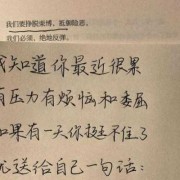 我们要挣脱束缚、抵御暗恶,
我们必须,绝地反弹。
我知道你最近很累
有压力有烦恼和委屈
如果有一天你挺不住了
就送给自己一句话: